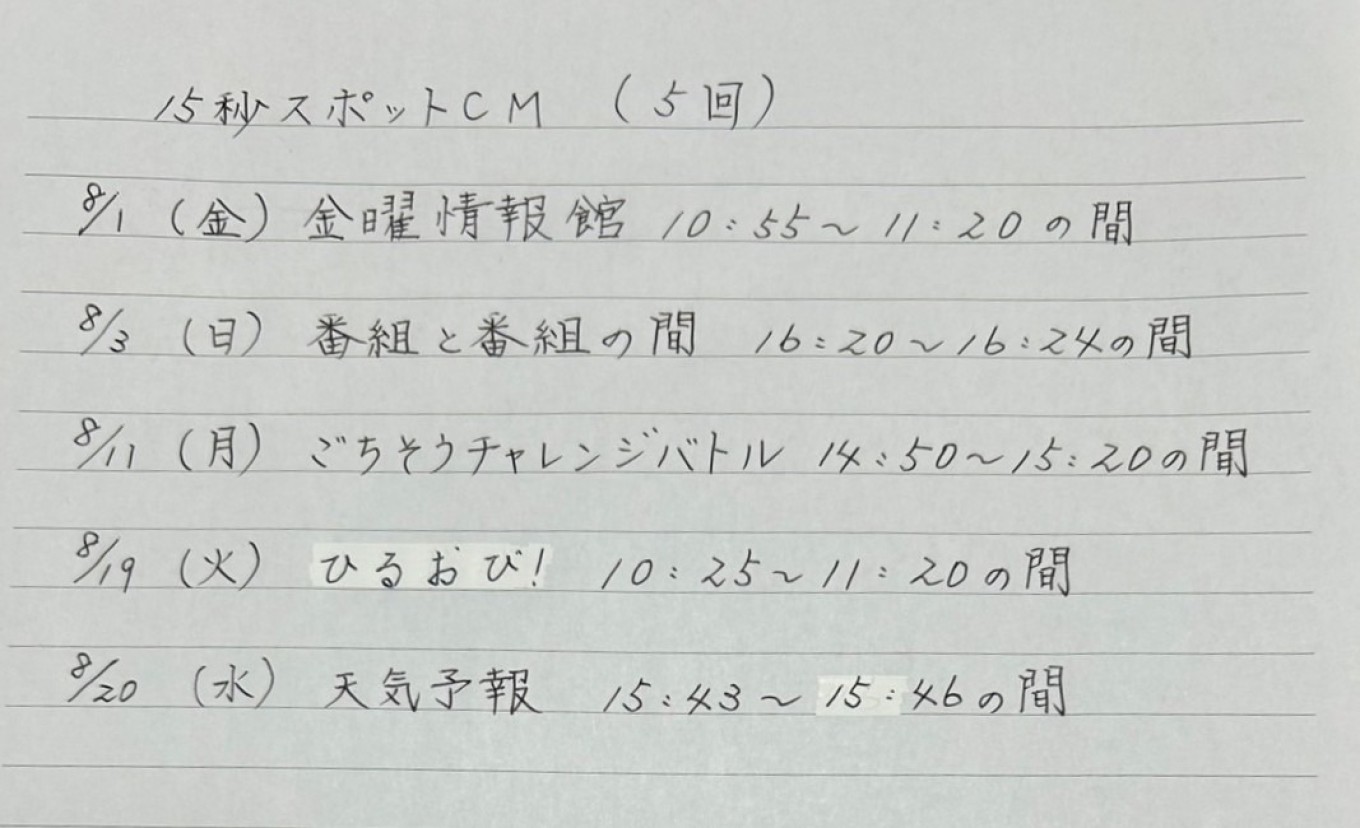 15秒スポットCM （5回）
8/1（金）金曜情報館 10:55～11:20の間
8/3（日）番組と番組の間 16:20～16:24の間
8/11（月）ごちそうチャレンジバトル 14:50～15:20の間
8/19（火）ひるおび! 10:25～11:20の間
8/20（水）天気予報 15:43～15:46の間